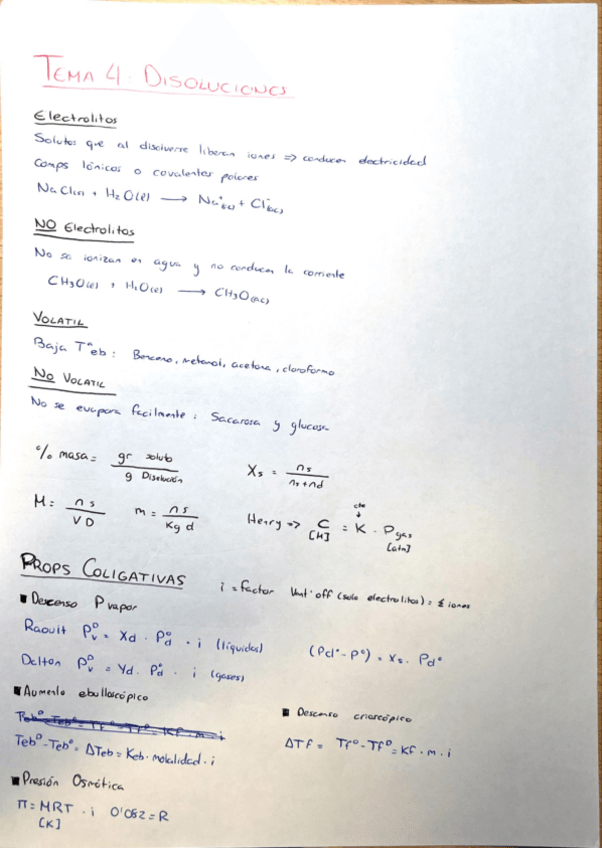 TEMA 4: DISOLUCIONES
Electrolitos
Solutos que al disolverse liberan iones => conducen electricidad
Comps Iónicos o covalentes polares
NaCl(s) + H2O(l) → Na+(ac) + Cl-(ac)
NO Electrolitos
No se ionizan en agua y no conducen la corriente
CH3O(l) + H2O(l) → CH3O(ac)
VOLATIL
Baja Tªeb: Benceno, metanol, acetona, cloroformo
NO VOLATIL
No se evapora facilmente: Sacarosa y glucosa
% masa = gr soluto / g Disolución
Xs = ns / ns+nd
M = ns / VD
m = ns / Kg d
Henry => C = K · Pgas
cte
↓
[M] [atm]
PROPS COLIGATIVAS
i = factor Vant'off (solo electrolitos) = Σ iones
■ Descenso Pvapor
Raoult PvD = Xd · Pd° · i (líquidos)
(Pd° - PD) = Xs · Pd°
Dalton PvD = Yd · Pd° · i (gases)
■ Aumento ebulloscópico
TebD - Teb° = ΔTeb = Keb · molalidad · i
■ Descenso crioscópico
ΔTf = Tf° - TfD = Kf · m · i
■ Presión Osmótica
π = MRT · i 0'082 = R
[K]